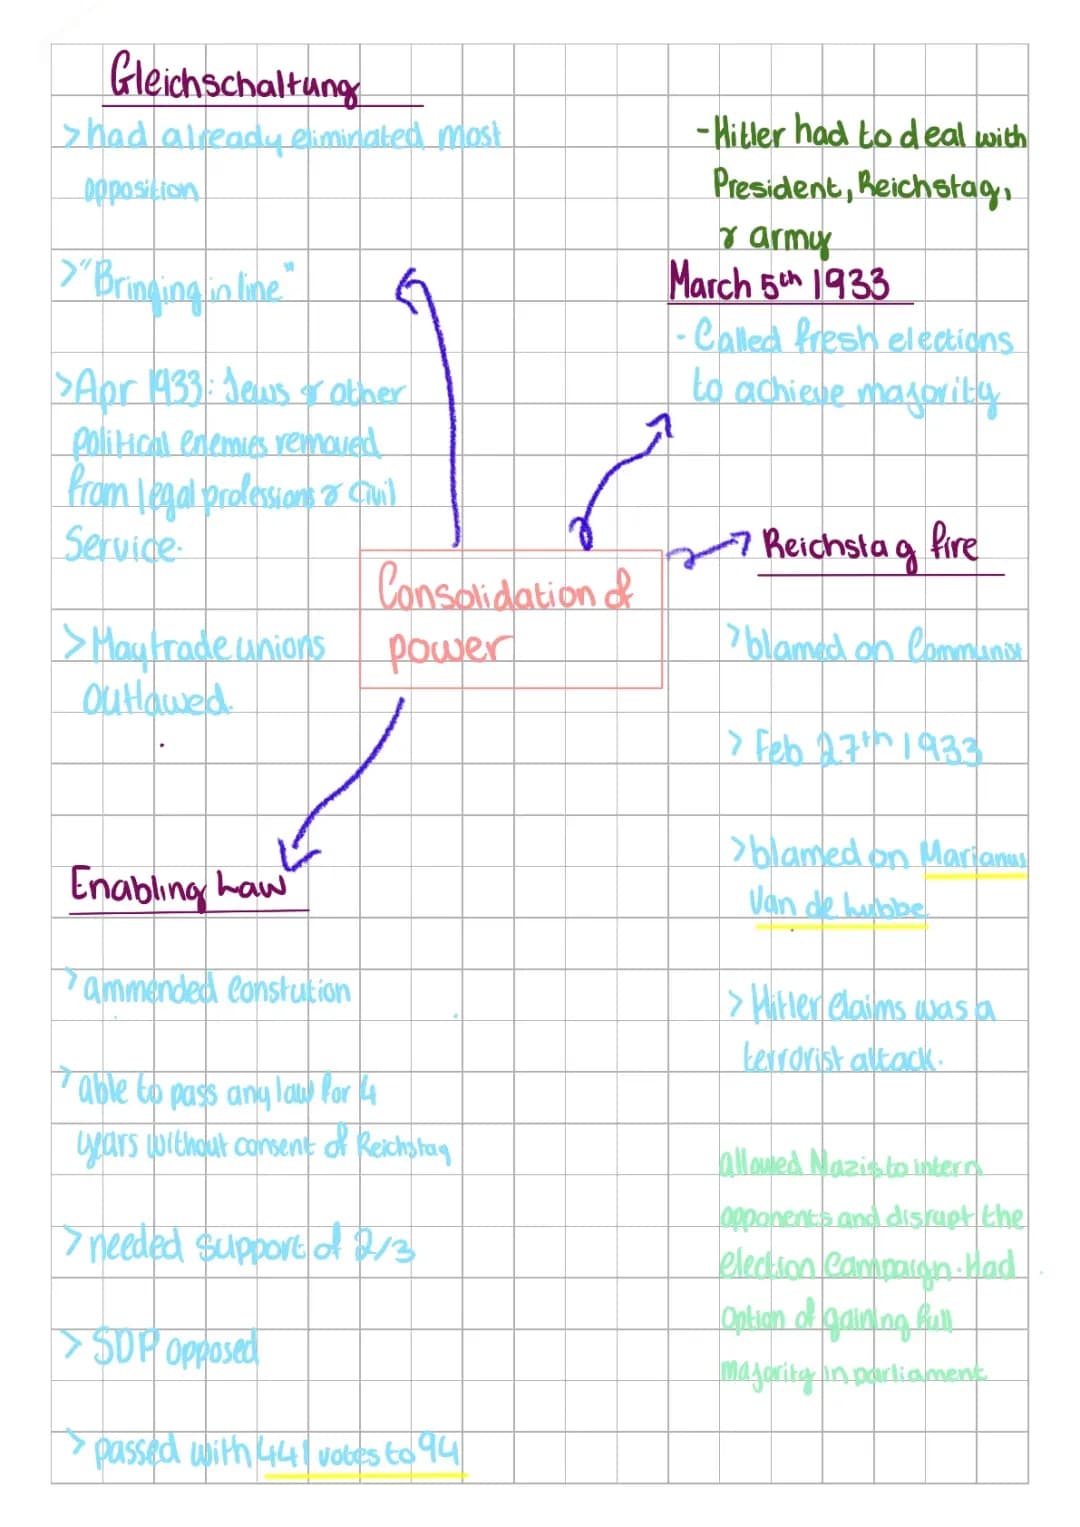 Gleichschaltung
>had already eliminated most
opposition
>"Bringing in line"
>Apr 1933: Jews & other
political enemies removed
from legal professions & Civil
Service.
>May trade unions
outlawed.
-Hitler had to deal with
President, Reichstag,
& army
March 5th 1933
- Called fresh elections
to achieve majority
Consolidation of
power
Reichstag fire
>blamed on Communist
> Feb 27th 1933
>blamed on Marianus
Van de Lubbe
> Hitler claims was a
terrorist attack.
allowed Nazis to intern
opponents and disrupt the
election Campaign. Had
Option of gaining full
majority in parliament
Enabling Law
>ammended Constution
>able to pass any law for 4
years without consent of Reichstag
>needed support of 2/3
> SDP opposed
> passed with 441 votes to 94